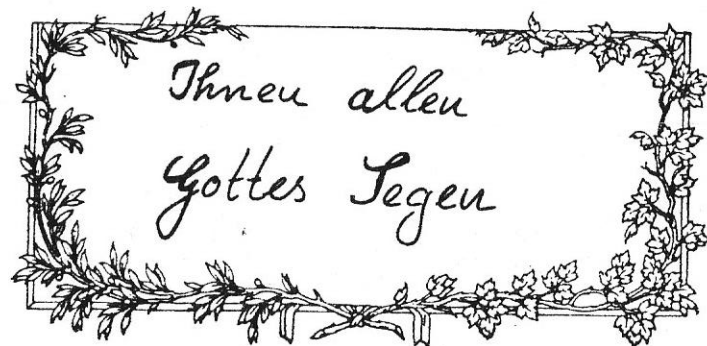 Ihnen allen
Gottes Segen